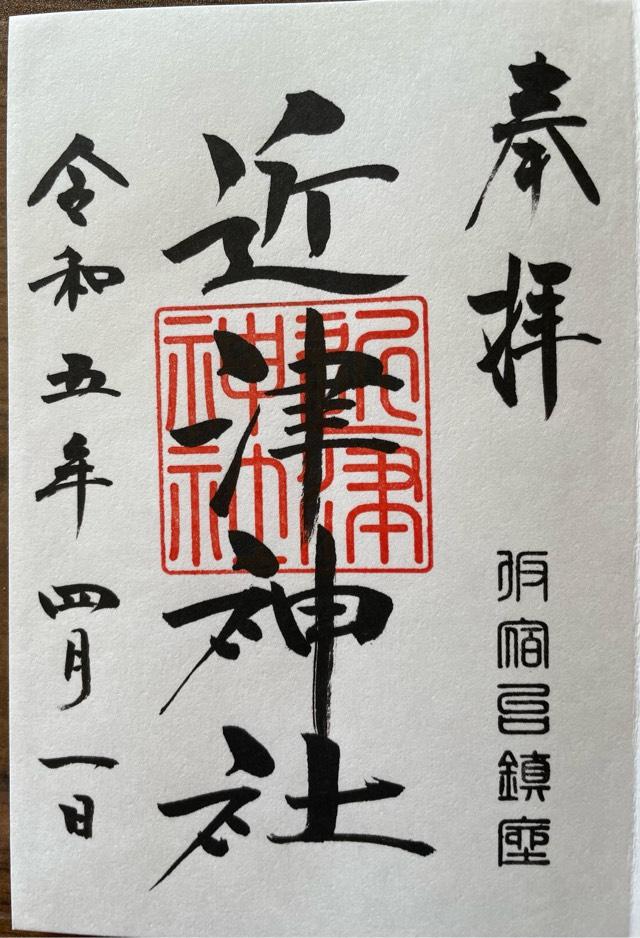 奉拝
仮宿邑鎮座
近津神社
近津神社
令和五年四月一日